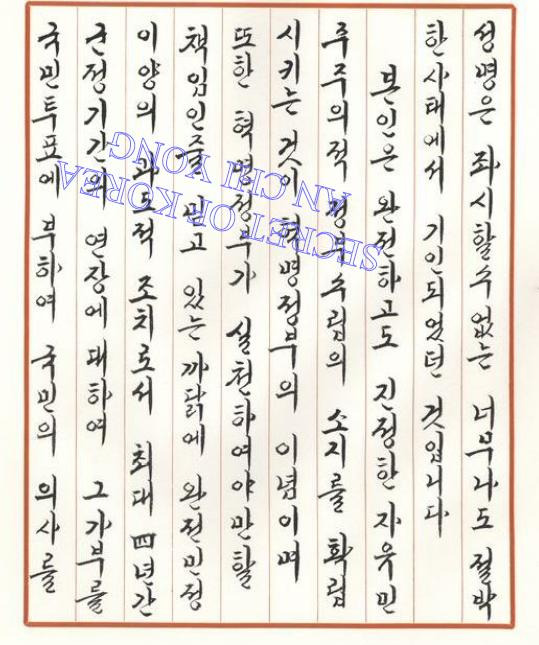 성명은 좌시할수없는 너무나도 절박
한사태에서 기인되었던 것입니다
본인은 완전하고도 진정한 자유민
주주의적 정부수립의 소지를 확립
시키는 것이 혁명정부의 이념이며
또한 혁명정부가 실천하여야만할
책임인줄 믿고 있는 까닭에 완전민정
이양의 과도적 조치로서 최대 四년간
군정기간의 연장에 대하여 그가부를
국민투표에 부하여 국민의 의사를
SECRET OF KOREA
AN CHI YONG